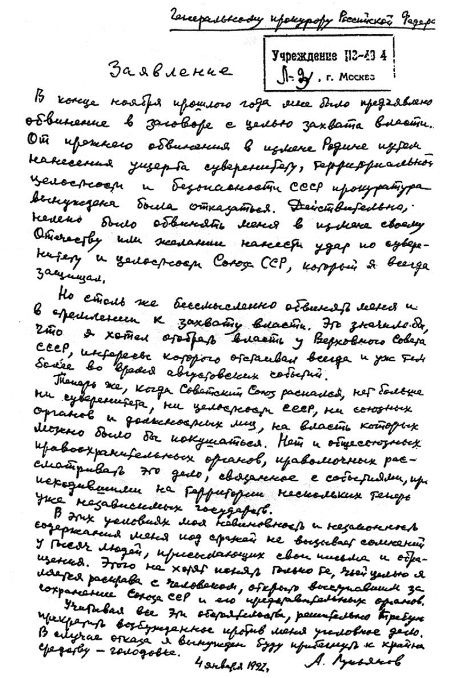 Генеральному прокурору Российской Федера
Учреждение ИЗ-48 4
г. Москва
Заявление
В конце ноября прошлого года мне было предъявлено
обвинение в заговоре с целью захвата власти.
От прежнего обвинения в измене Родине путем
нанесения ущерба суверенитету, территориальной
целостности и безопасности СССР прокуратура
вынуждена была отказаться. Действительно,
нелепо было обвинять меня в измене своему
Отечеству или желании нанести удар по сувере-
нитету и целостности Союза ССР, который я всегда
защищал.
Но столь же бессмысленно обвинять меня и
в стремлении к захвату власти. Это значило бы,
что я хотел отобрать власть у Верховного Совета
СССР, интересы которого отстаивал всегда и уже тем
более во время августовских событий.
Теперь же, когда Советский Союз распался, нет больше
ни суверенитета, ни целостности СССР, ни союзных
органов и должностных лиц, на власть которых
можно было бы покушаться. Нет и общесоюзных
правоохранительных органов, правомочных рас-
сматривать это дело, связанное с событиями, про
исходившими на территории нескольких теперь
уже независимых государств.
В этих условиях моя невиновность и незаконность
содержания меня под стражей не вызывает сомнений
у тысяч людей, присылающих свои письма и обра-
щения. Этого не хотят понять только те, чьей целью я
ляется расправа с человеком, открыто выступавшим за
сохранение Союза ССР и его представительных органов.
Учитывая все эти обстоятельства, решительно требую
прекратить возбужденное против меня уголовное дело.
В случае отказа я вынужден буду прибегнуть к крайне
средству – голодовке.
4 января 1992, А. Лукьянов